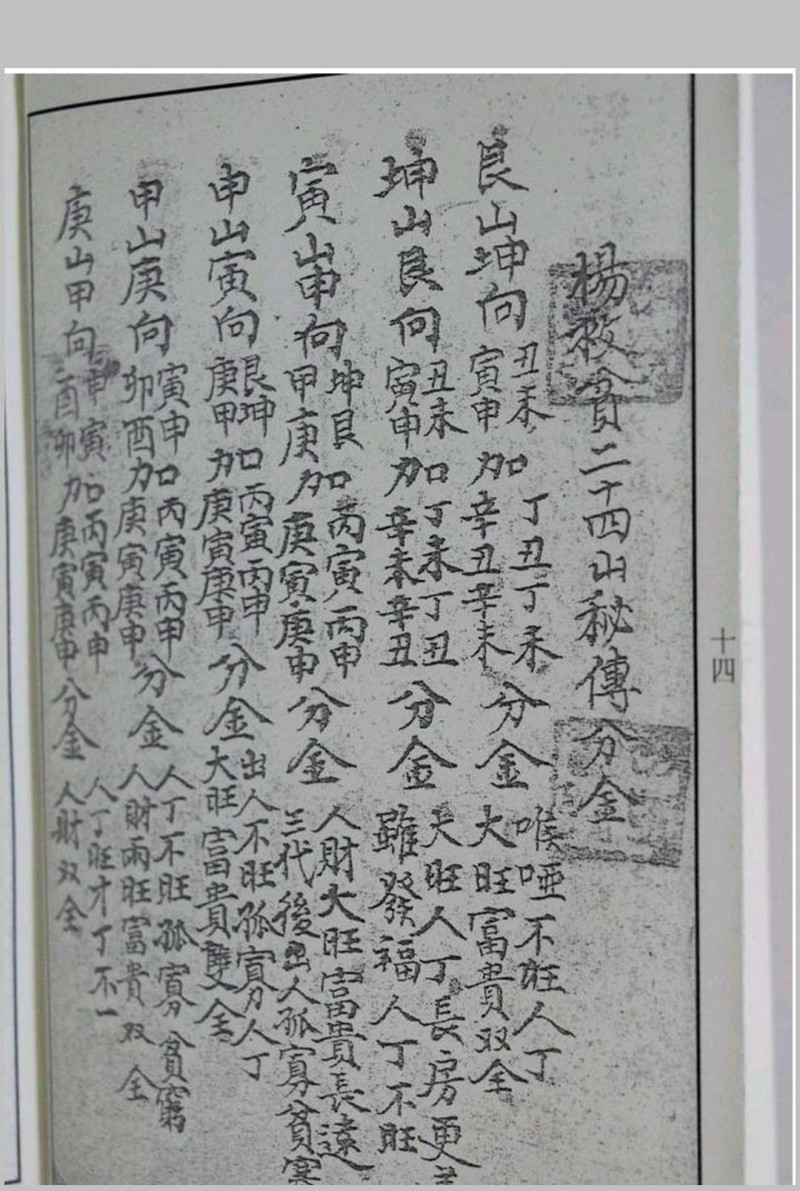 楊救貧二十四山秘傳分金
艮山坤向 丑未加丁丑丁未 寅申加辛丑辛未 分金 喉啞不旺人丁 大旺富貴双全
坤山艮向 丑未加丁未丁丑 寅申加辛未辛丑 分金 大旺人丁長房更 雖發福人丁不旺
寅山申向 坤艮加丙寅丙申 甲庚加庚寅庚申 分金 人財大旺富貴長遠 三代後出人孤寡貧寒
申山寅向 艮坤加丙寅丙申 庚甲加庚寅庚申 分金 出人不旺孤寡人丁 大旺富貴雙全
甲山庚向 寅申加丙寅丙申 卯酉加庚寅庚申 分金 人丁不旺孤寡貧窮 人財兩旺富貴双全
庚山甲向 申寅加丙寅丙申 酉卯加庚寅庚申 分金 人丁旺才丁不一 人財双全
十四